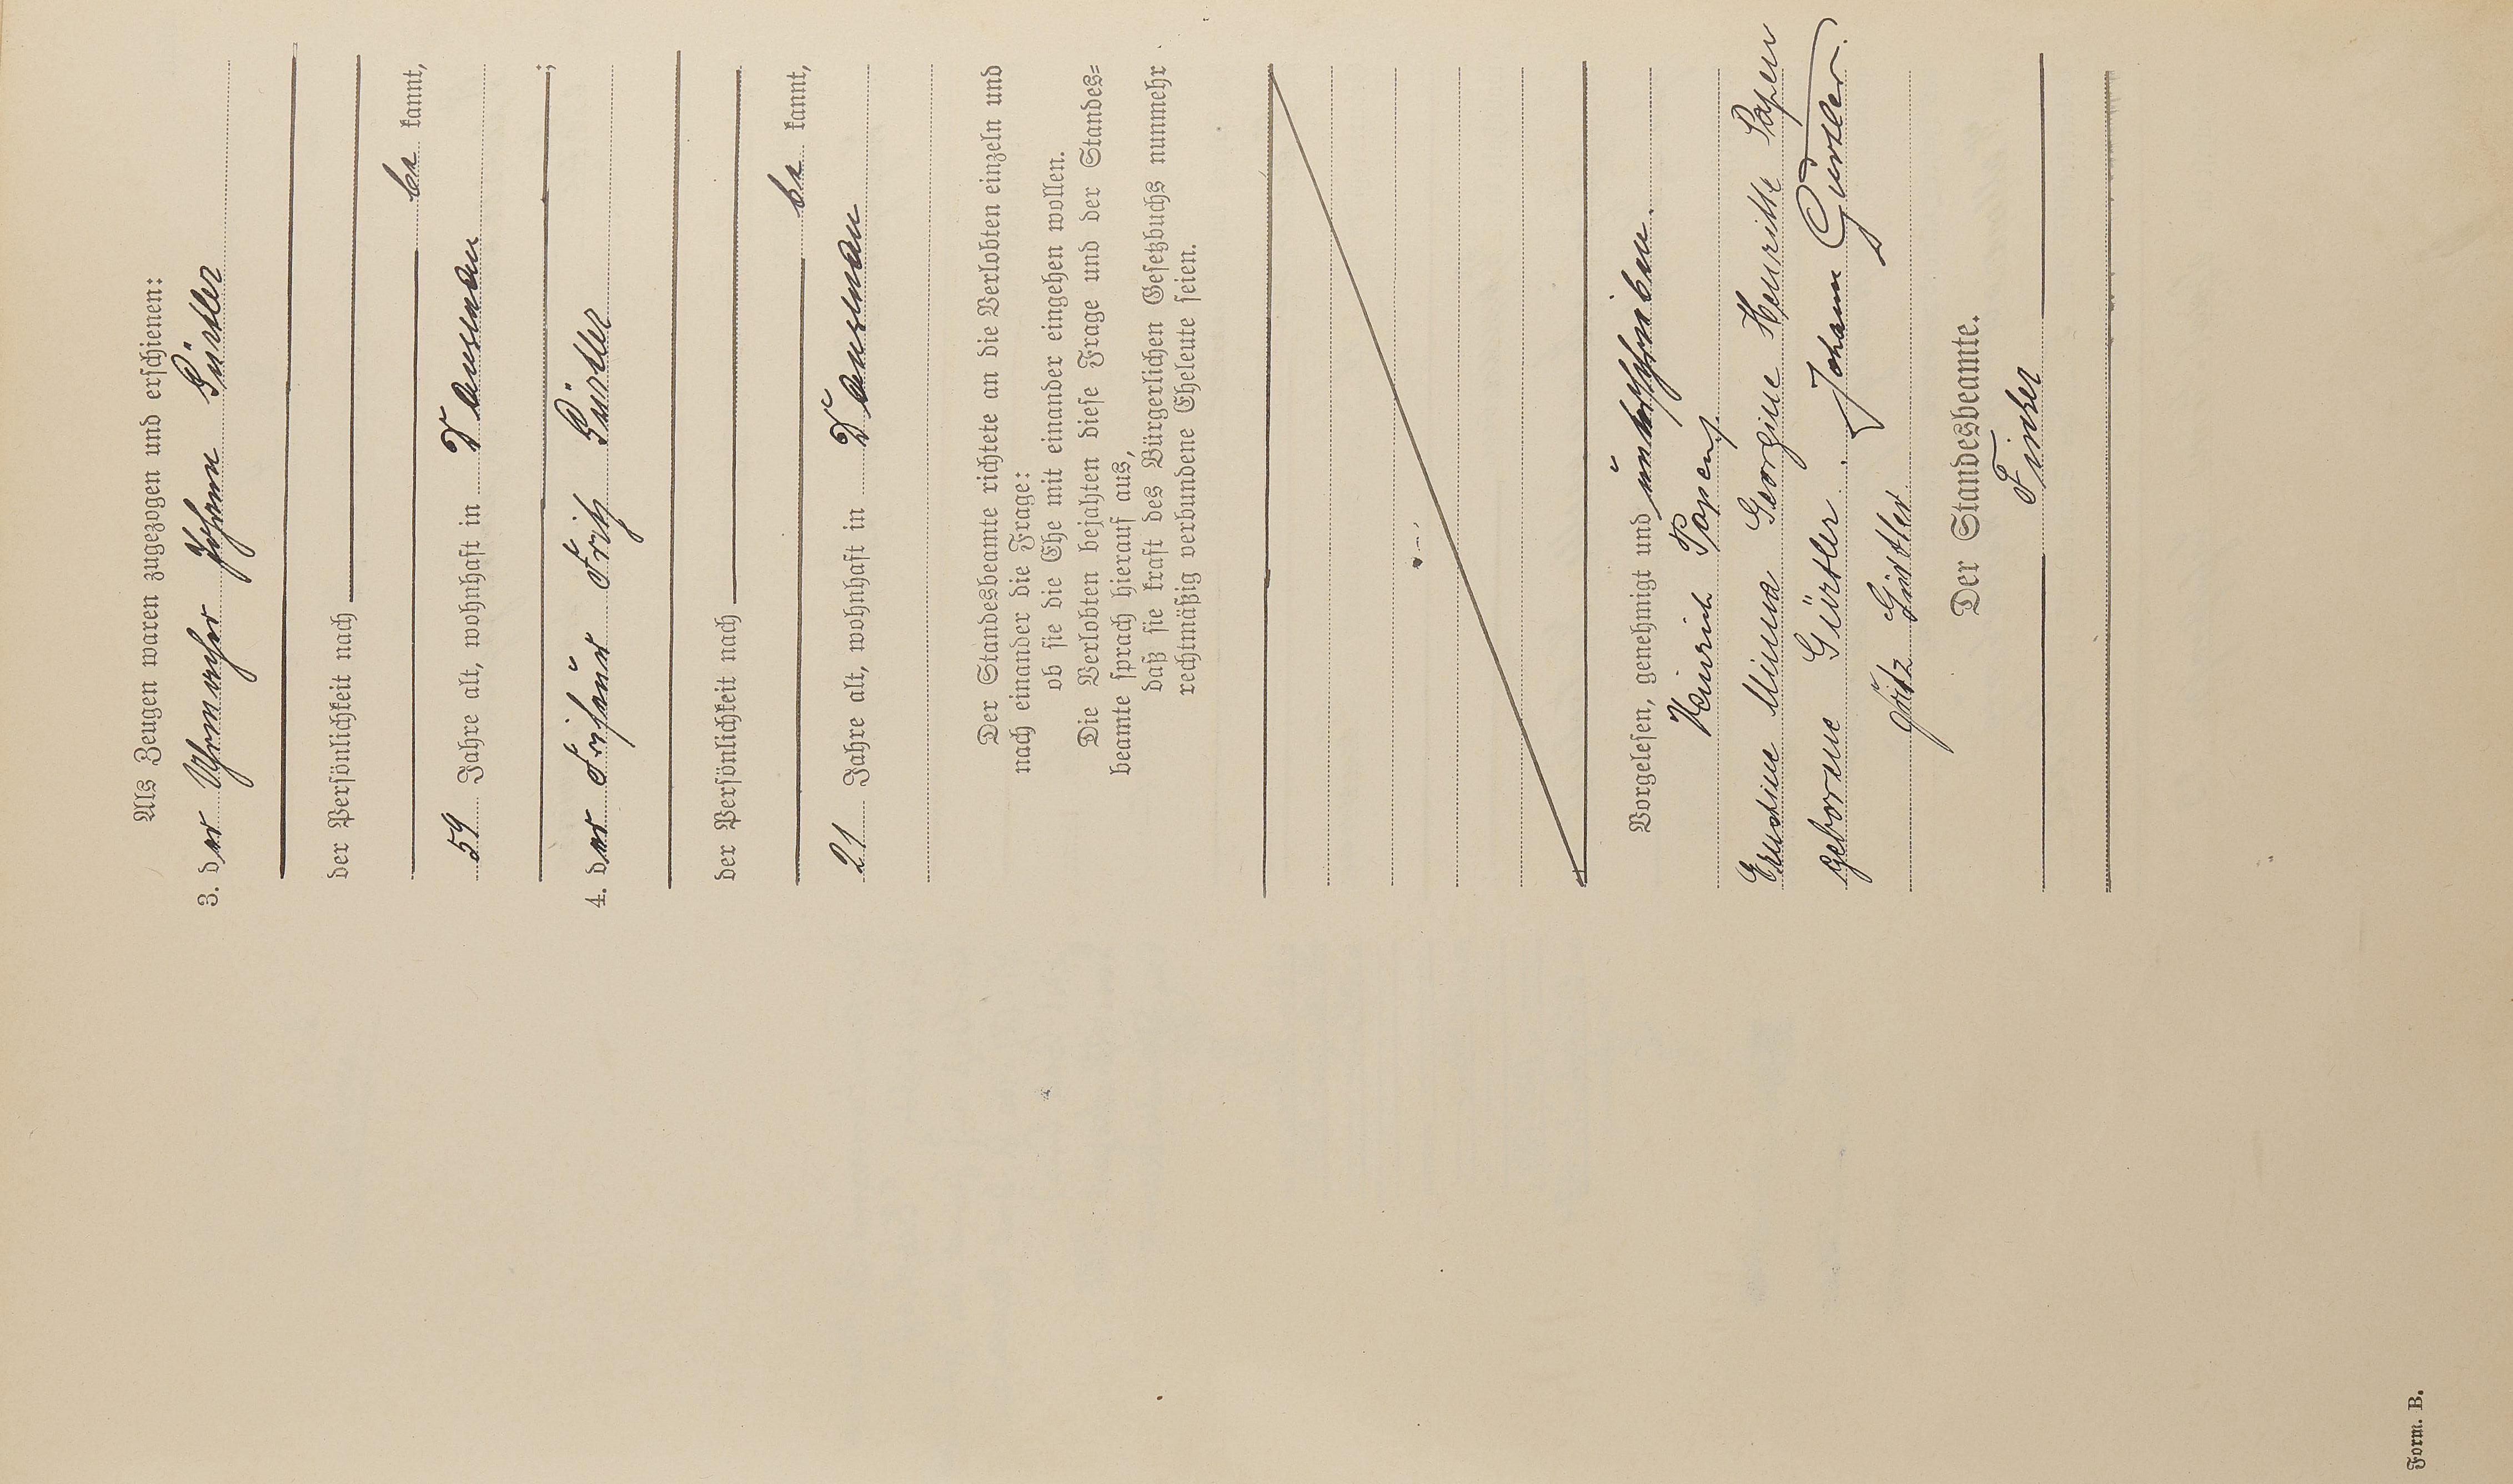 Als Zeugen waren zugezogen und erschienen:
3. der Uhrmacher Johann Gürtler
der Persönlichkeit nach
be kannt,
59 Jahre alt, wohnhaft in
;
4. der Friseur Fritz Gürtler
der Persönlichkeit nach
be kannt,
21 Jahre alt, wohnhaft in
Der Standesbeamte richtete an die Verlobten einzeln und
nach einander die Frage:
ob sie die Ehe mit einander eingehen wollen.
Die Verlobten bejahten diese Frage und der Standes=
beamte sprach hierauf aus,
daß sie kraft des Bürgerlichen Gesetzbuchs nunmehr
rechtmäßig verbundene Eheleute seien.
Vorgelesen, genehmigt und unterschrieben.
Heinrich Papen
Ernstine Minna Georgine Henriette Papen
geborene Gürtler. Johann Gürtler.
Gürtler
Der Standesbeamte.
Form. B.